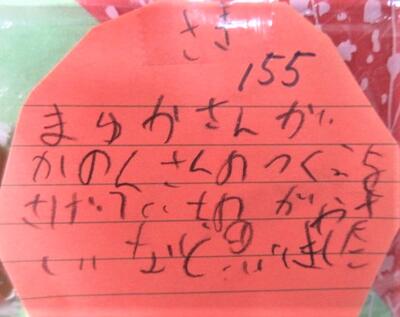 さき
155
まゆかさんが
かのんさんのつくえを
さげていたのがやさ
しいなとおもいました